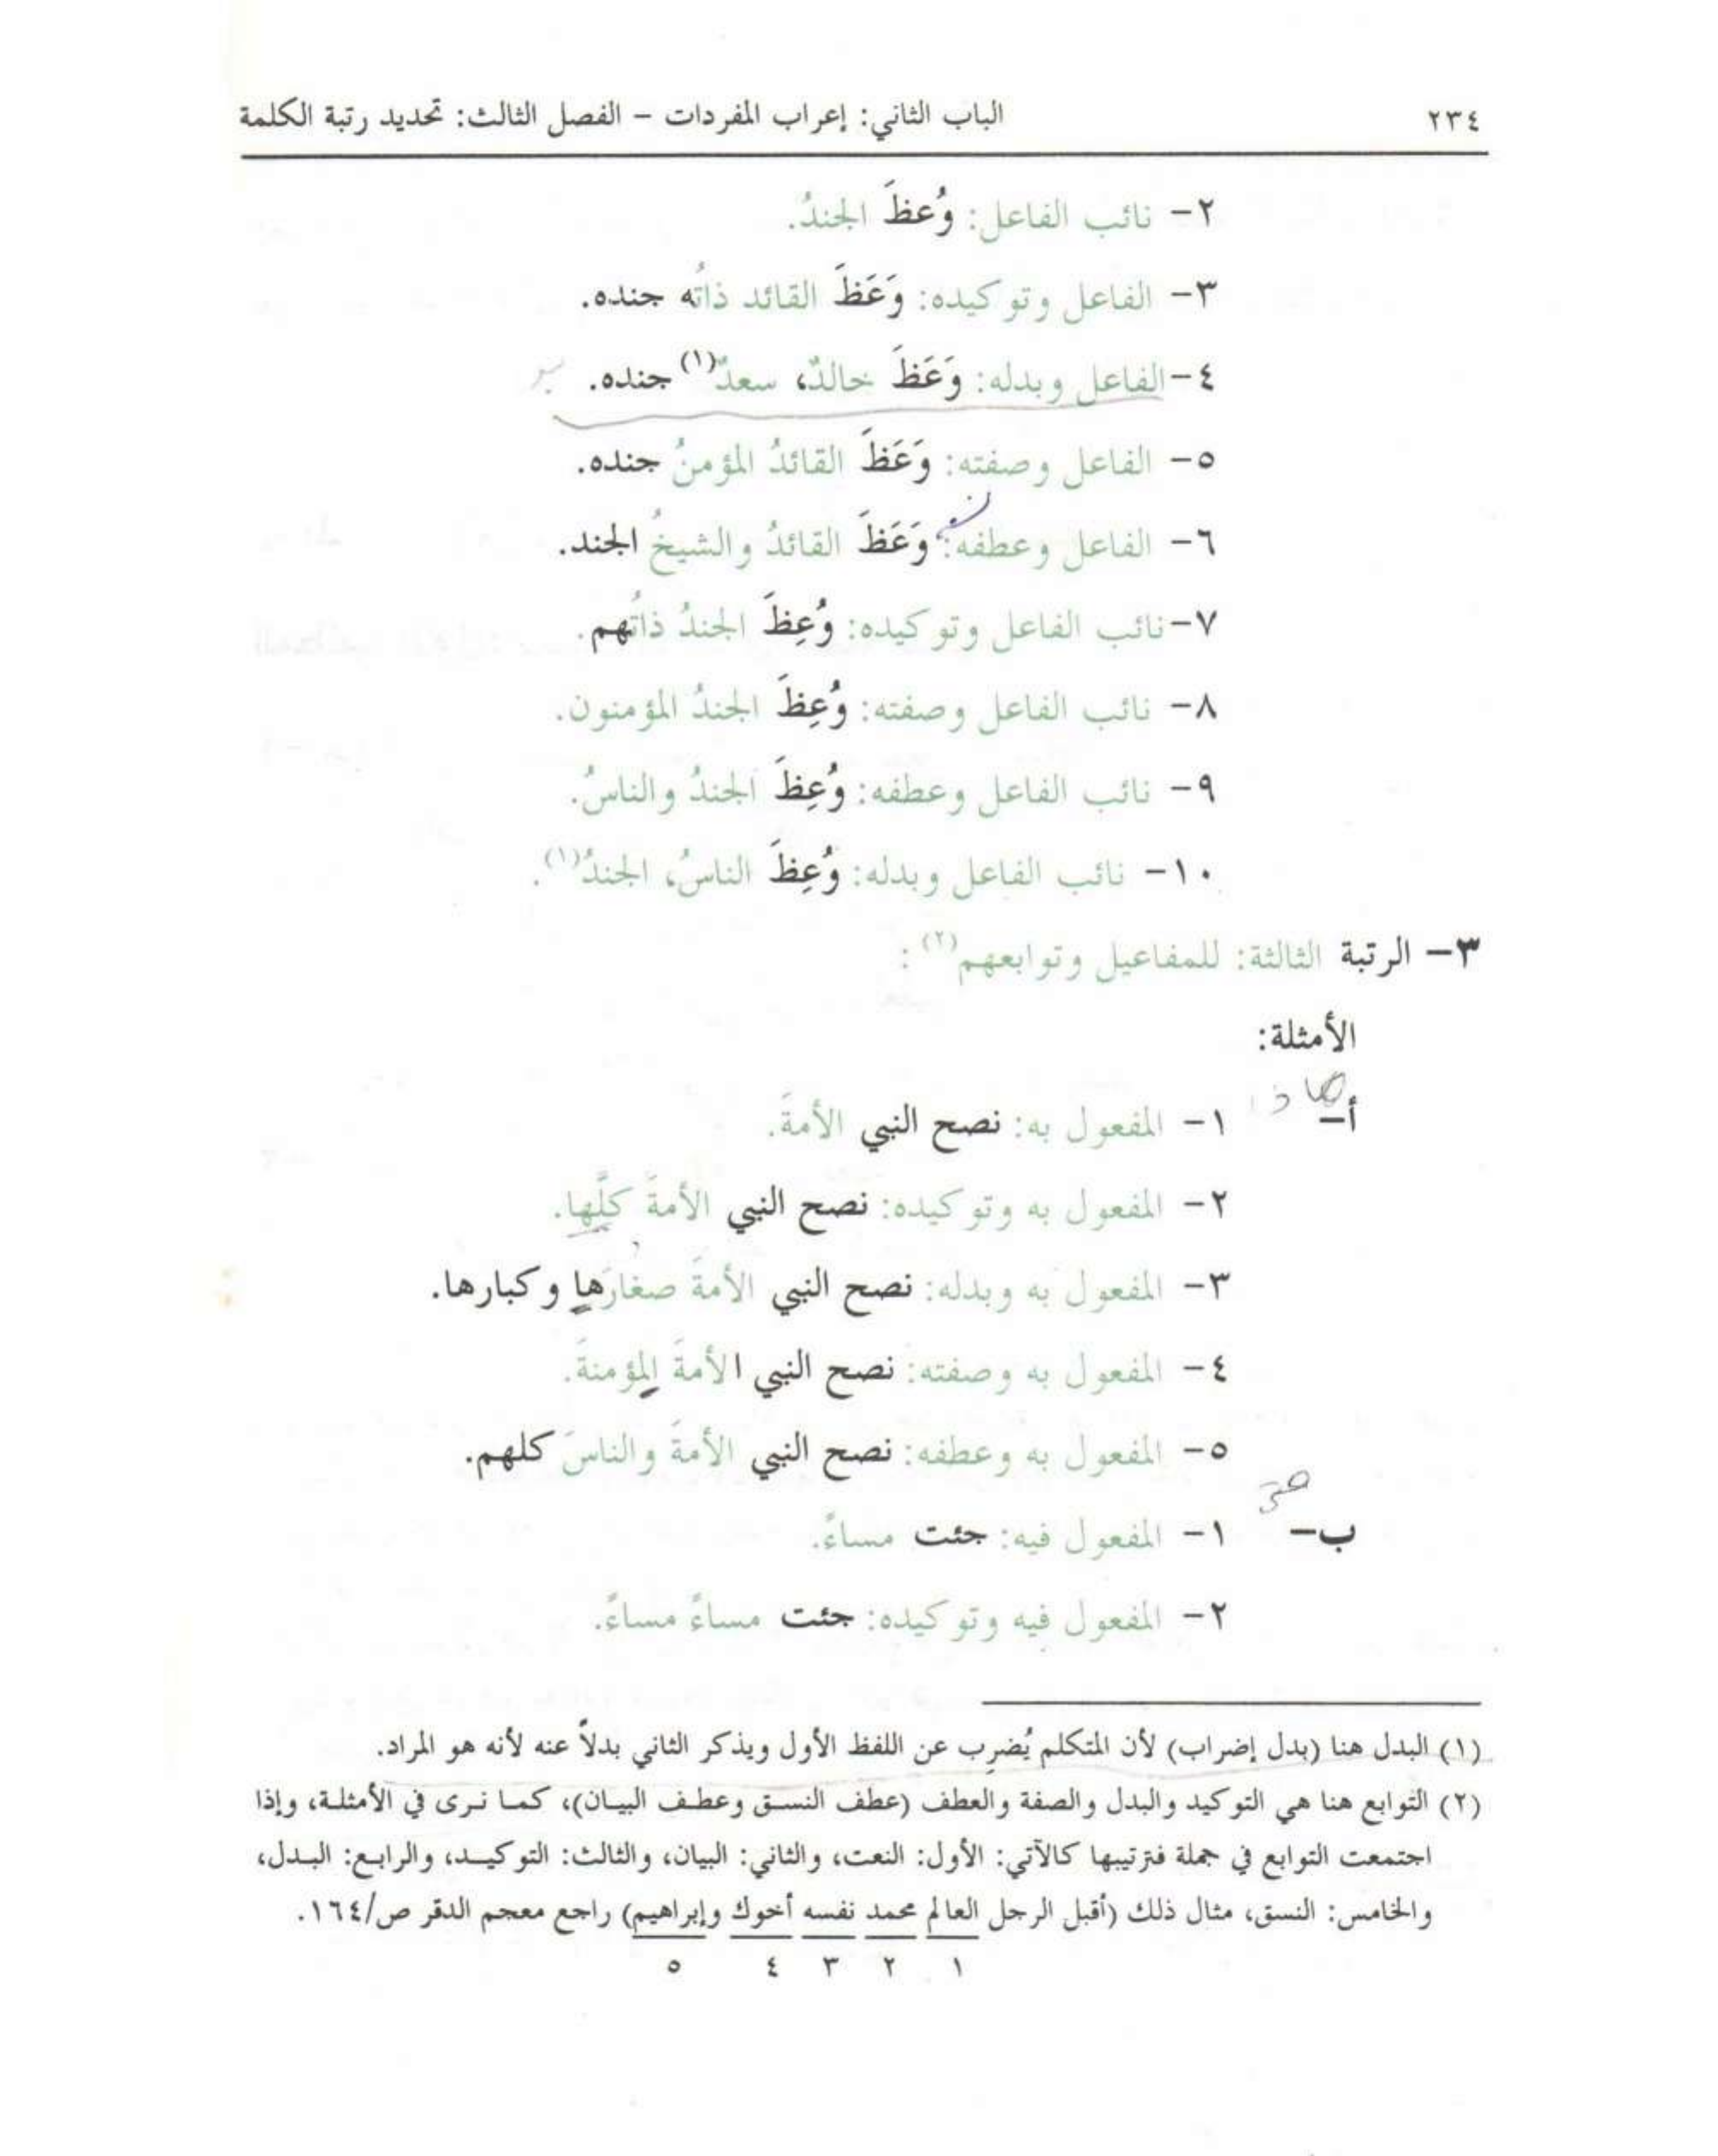 ٢٣٤ الباب الثاني: إعراب المفردات – الفصل الثالث: تحديد رتبة الكلمة
٢- نائب الفاعل: وُعظَ الجندُ.
٣- الفاعل وتوكيده: وَعَظَ القائد ذاتُه جنده.
٤- الفاعل وبدله: وَعَظَ خالدٌ، سعدٌ(١) جنده.
٥- الفاعل وصفته: وَعَظَ القائدُ المؤمنُ جنده.
٦- الفاعل وعطفه: وَعَظَ القائدُ والشيخُ الجند.
٧- نائب الفاعل وتوكيده: وُعِظَ الجندُ ذاتُهم.
٨- نائب الفاعل وصفته: وُعِظَ الجندُ المؤمنون.
٩- نائب الفاعل وعطفه: وُعِظَ الجندُ والناسُ.
١٠- نائب الفاعل وبدله: وُعِظَ الناسُ، الجندُ(١).
٣- الرتبة الثالثة: للمفاعيل وتوابعهم(٢):
الأمثلة:
أ- ١- المفعول به: نصح النبي الأمةَ.
٢- المفعول به وتوكيده: نصح النبي الأمةَ كلَّها.
٣- المفعول به وبدله: نصح النبي الأمةَ صغارَها وكبارها.
٤- المفعول به وصفته: نصح النبي الأمةَ المؤمنةَ.
٥- المفعول به وعطفه: نصح النبي الأمةَ والناسَ كلهم.
ب- ١- المفعول فيه: جئت مساءً.
٢- المفعول فيه وتوكيده: جئت مساءً مساءً.
(١) البدل هنا (بدل إضراب) لأن المتكلم يُضرِب عن اللفظ الأول ويذكر الثاني بدلاً عنه لأنه هو المراد.
(٢) التوابع هنا هي التوكيد والبدل والصفة والعطف (عطف النسق وعطف البيان)، كما نرى في الأمثلة، وإذا
اجتمعت التوابع في جملة فترتيبها كالآتي: الأول: النعت، والثاني: البيان، والثالث: التوكيد، والرابع: البدل،
والخامس: النسق، مثال ذلك (أقبل الرجل العالم محمد نفسه أخوك وإبراهيم) راجع معجم الدقر ص/١٦٤.
١ ٢ ٣ ٤ ٥